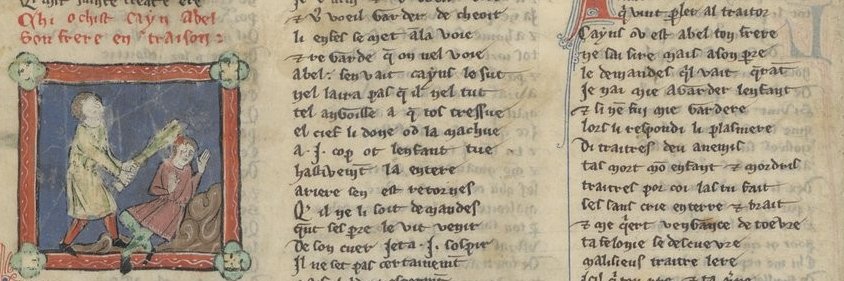 Chi ochist Cayn Abel
Son frere en traison:
& voeil garder de cheoir
li enfes se met ala voie
& regarde qon nel voie
abel. sen vait cayns le siut
nel laira pas qil nel tut
tel angoisse a q tos tressue
el cief li done od la machue
a .i. cop ot lenfant tue
hastivemt la entere
ariere sen est retornes
Qil ne li soit demandes
quit ses pre le vit venir
De son cuer jeta .i. sospir
Il ne set pas certainemt
qvint pler al traitor
Cayns ou est abel ton frere
ne sai sire mais a son pre
le demandes ql vait qrat
Je nai mie a garder lenfant
& si ne fui mie gardere
lors li respondi li plasmere
Di traitres deu anemis
tas mort mo enfant & mordris
traitres por coi las tu fait
ses sans crie en terre & brait
& me qert venganče de toevre
ta felonie se descuevre
malisieus traitre lere